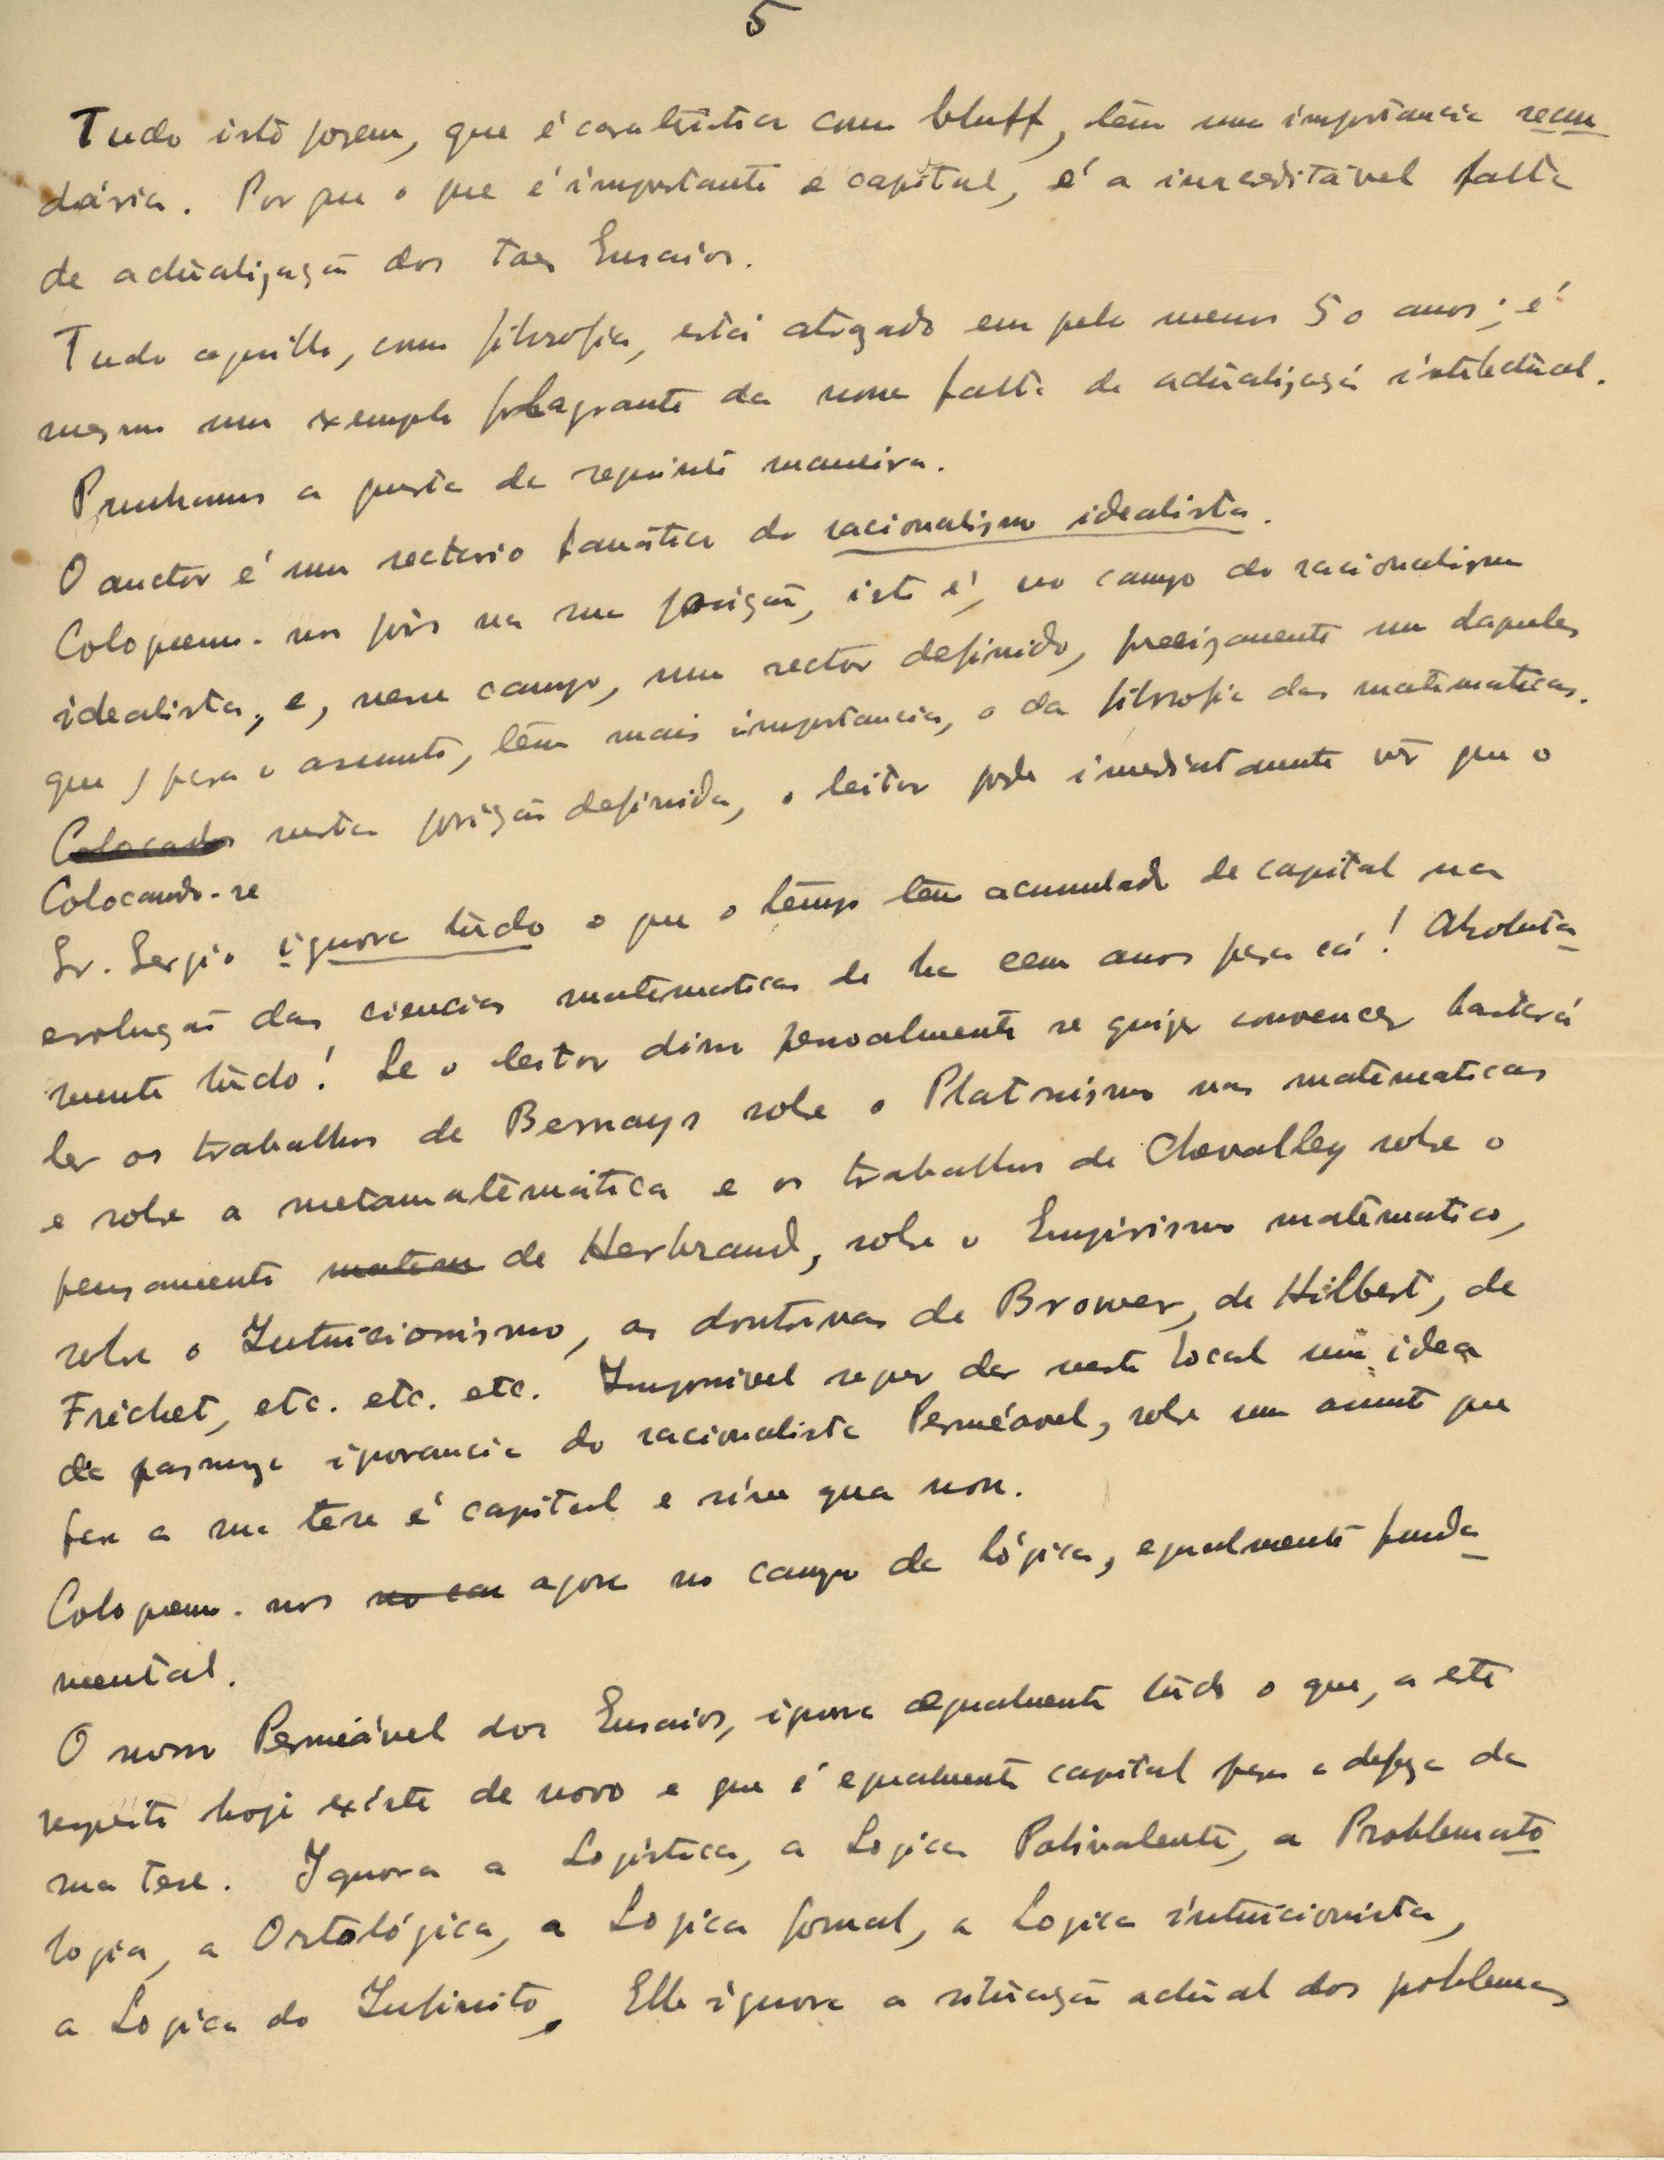 5
Tudo isto porem, que é caraterística como bluff, têm uma importancia secun
dária. Por que o que é importante e capital, é a inacreditável falta
de actualização dos taes Ensaios.
Tudo aquillo, como filosofia, está atrazado em pelo menos 50 anos; é
mesmo um exemplo flagrante da nossa falta de actualização intelectual.
Ponhamos a questa da seguinte maneira.
O auctor é um sectario fanático do racionalismo idealista.
Coloquemo-nos pois na sua posição, isto é, no campo do racionalismo
idealista, e, nesse campo, num sector definido, precizamente um daqueles
que, para o assunto, têm mais importancia, o da filosofia das matematicas.
Colocados nesta posição definida, o leitor pode imediatamente vêr que o
Colocando-se
Sr. Sergio ignora tudo o que o tempo tem acumulado de capital na
evolução das ciencias matematicas de ha cem anos para cá! Absoluta
mente tudo! Se o leitor disso pessoalmente se quizer convencer bastará
ler os trabalhos de Bernays sobre o Platonismo nas matematicas
e sobre a metamatemática e os trabalhos de Chevalley sobre o
pensamento matem de Herbrand, sobre o Empirismo matematico,
sobre o Intuicionismo, as doutrinas de Brower, de Hilbert, de
Frechet, etc. etc. etc. Impossivel sequer dar neste local uma idea
da pasmoza ignorancia do racionalista Permeável, sobre um assunto que
para a sua tese é capital e sine qua non.
Coloquemo-nos no cam agora no campo da lógica, egualmente funda
mental.
O nosso Permeável dos Ensaios, ignora egualmente tudo o que, a este
respeito hoje existe de novo e que é egualmente capital para a defeza da
sua tese. Ignora a Logistica, a Logica Polivalente, a Problemato
logia, a Ortológica, a Logica formal, a Logica intuicionista,
a Logica do Infinito. Elle ignora a situação actual dos problemas